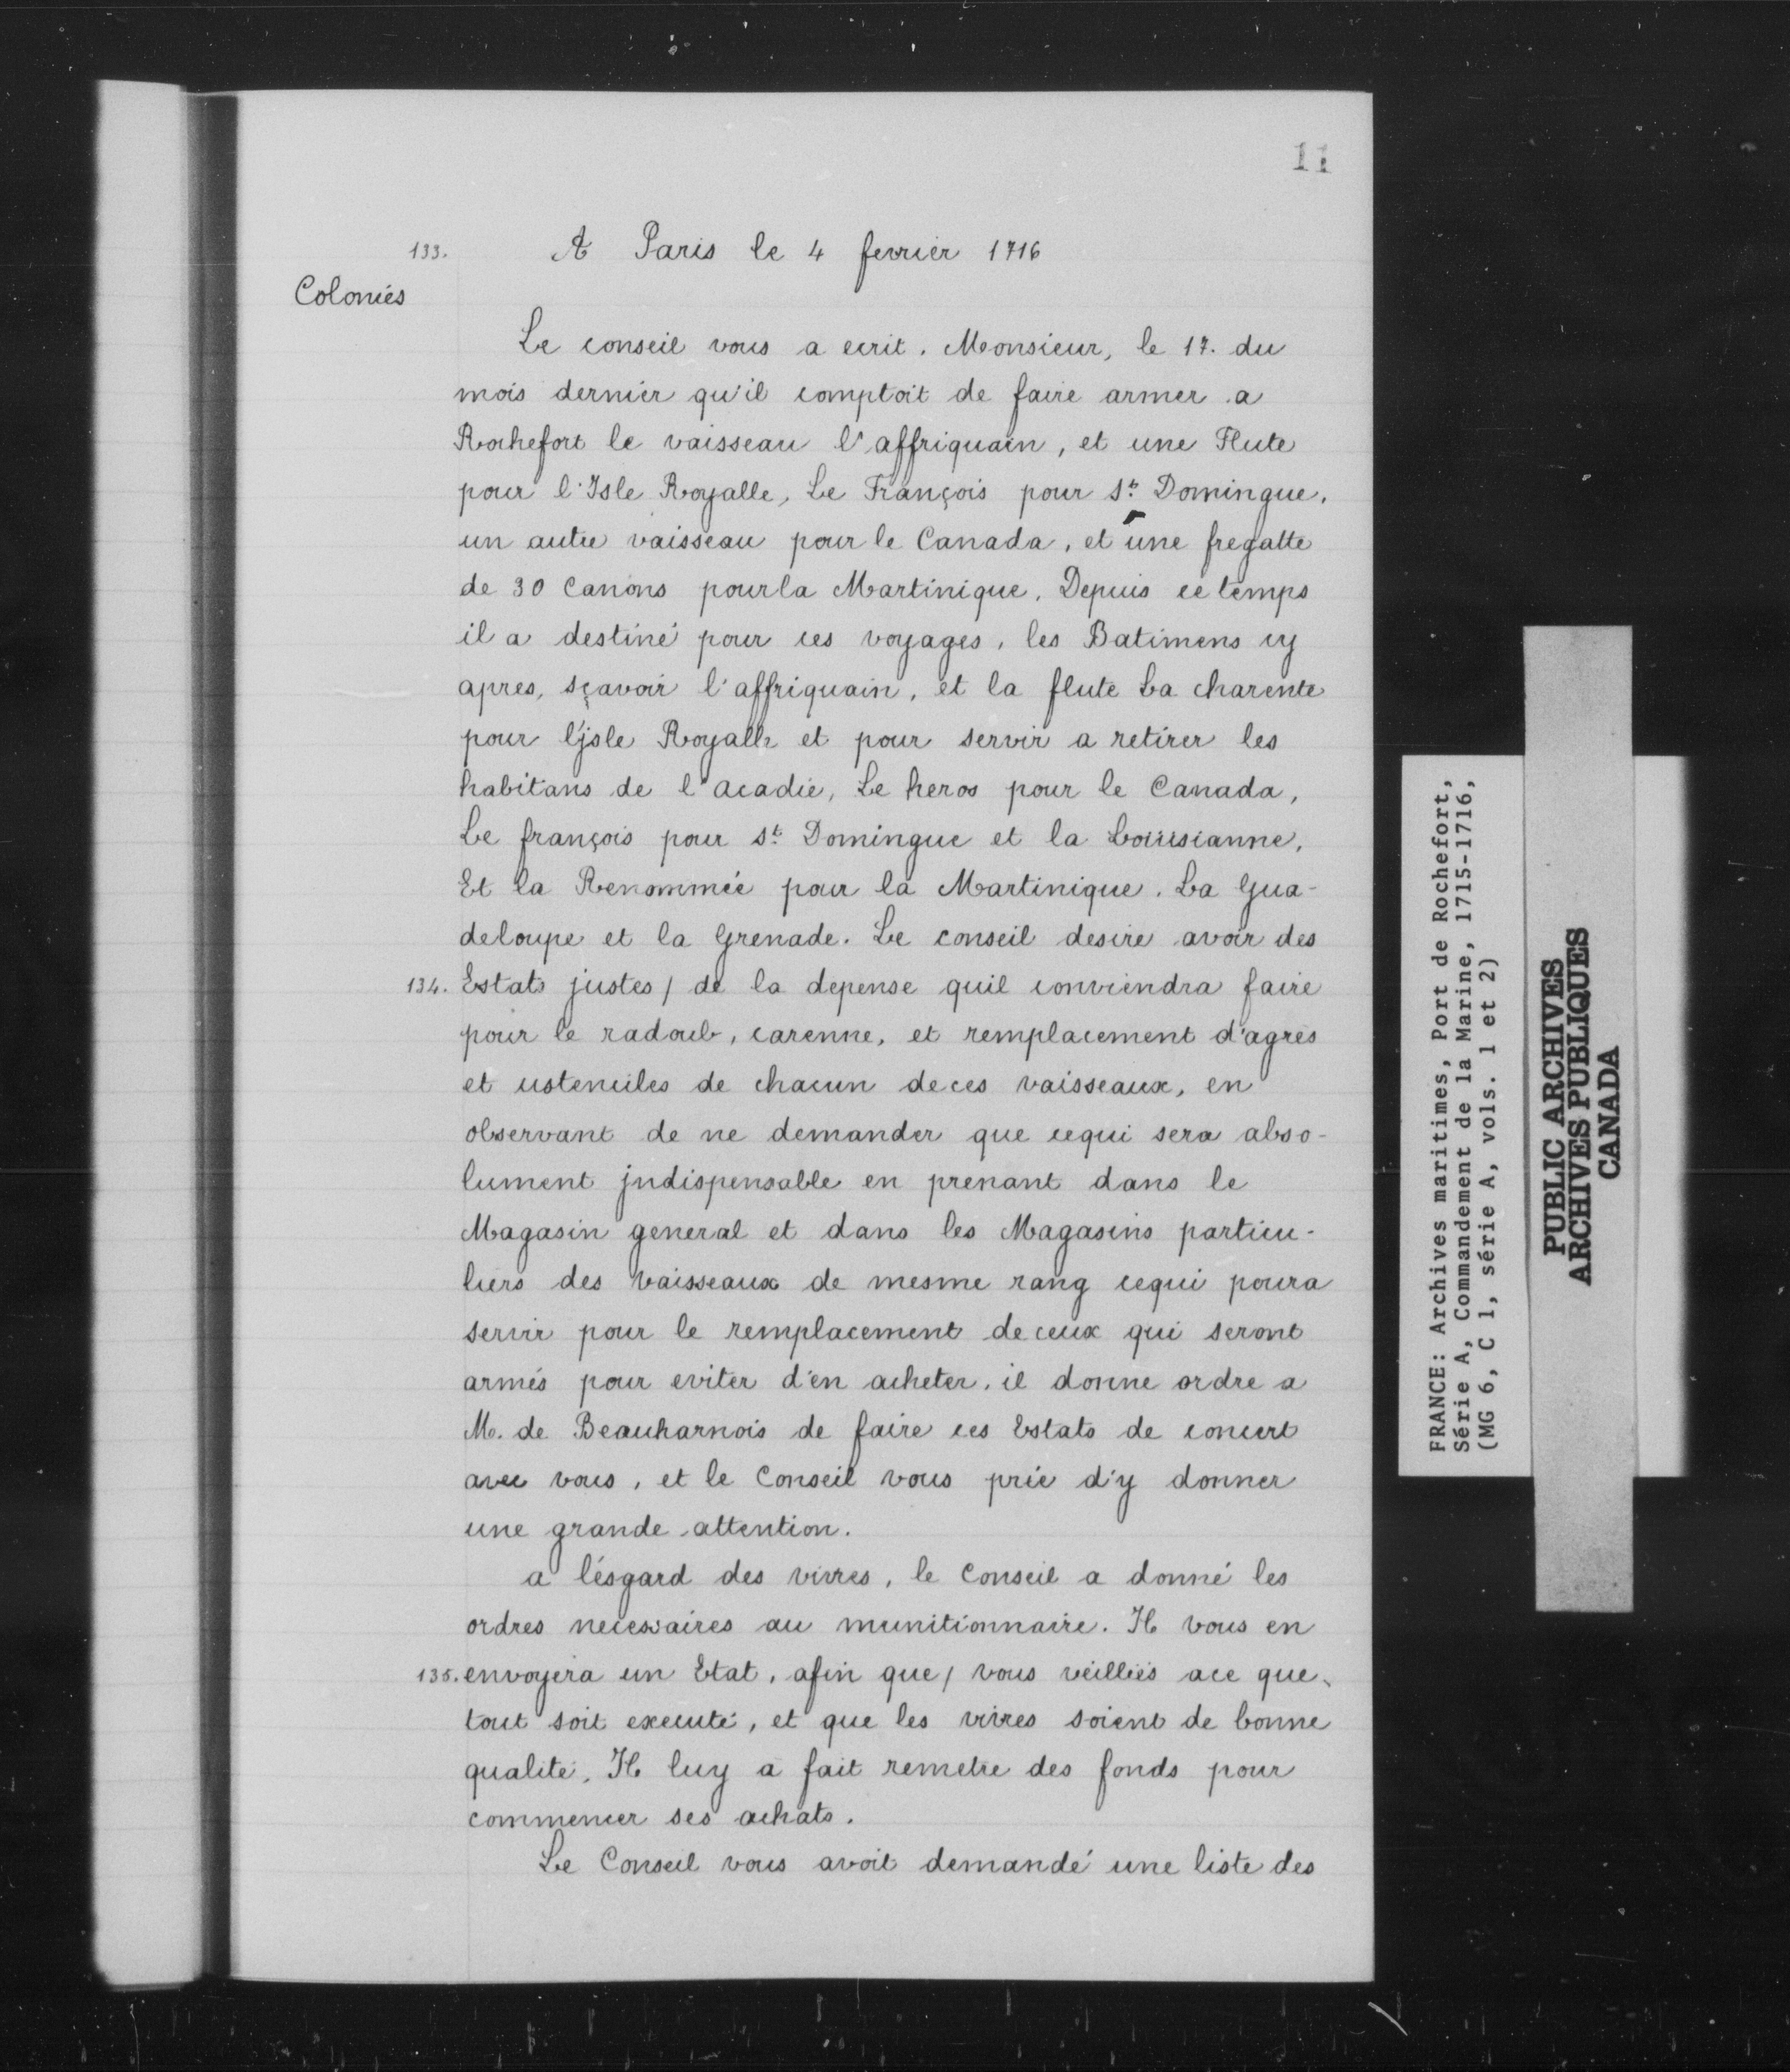 11
133. A Paris le 4 fevrier 1716
Colonies
Le conseil vous a ecrit. Monsieur, le 17. du
mois dernier qu'il comptoit de faire armer a
Rochefort le vaisseau l'affriquain, et une Flute
pour l'Isle Royalle, Le François pour St. Domingue,
un autre vaisseau pour le Canada, et une fregatte
de 30 Canons pour la Martinique. Depuis ce temps
il a destiné pour ces voyages, les Batimens cy
apres, sçavoir l'affriquain, et la flute La charente
pour l'jsle Royalle et pour servir a retirer les
habitans de l'acadie, Le heros pour le Canada,
Le françois pour St. Domingue et la Loüisianne,
Et la Renommée pour la Martinique. La Gua-
deloupe et la Grenade. Le conseil desire avoir des
134. Estats justes / de la depense quil conviendra faire
pour le radoub, carenne, et remplacement d'agres
et ustenciles de chacun de ces vaisseaux, en
observant de ne demander que cequi sera abso-
lument jndispensable en prenant dans le
Magasin general et dans les Magasins particu-
liers des vaisseaux de mesme rang cequi poura
servir pour le remplacement de ceux qui seront
armés pour eviter d'en acheter. il donne ordre a
M. de Beauharnois de faire ces Estats de concert
avec vous, et le Conseil vous prie d'y donner
une grande attention.
a l'ésgard des vivres, le Conseil a donné les
ordres necessaires au munitionnaire. Il vous en
135. envoyera un Etat, afin que / vous veilliés ace que
tout soit executé, et que les vivres soient de bonne
qualité. Il luy a fait remetre des fonds pour
commencer ses achats.
Le Conseil vous avoit demandé une liste des
FRANCE: Archives maritimes, Port de Rochefort,
Série A, Commandement de la Marine, 1715-1716,
(MG 6, C 1, série A, vols. 1 et 2)
PUBLIC ARCHIVES
ARCHIVES PUBLIQUES
CANADA